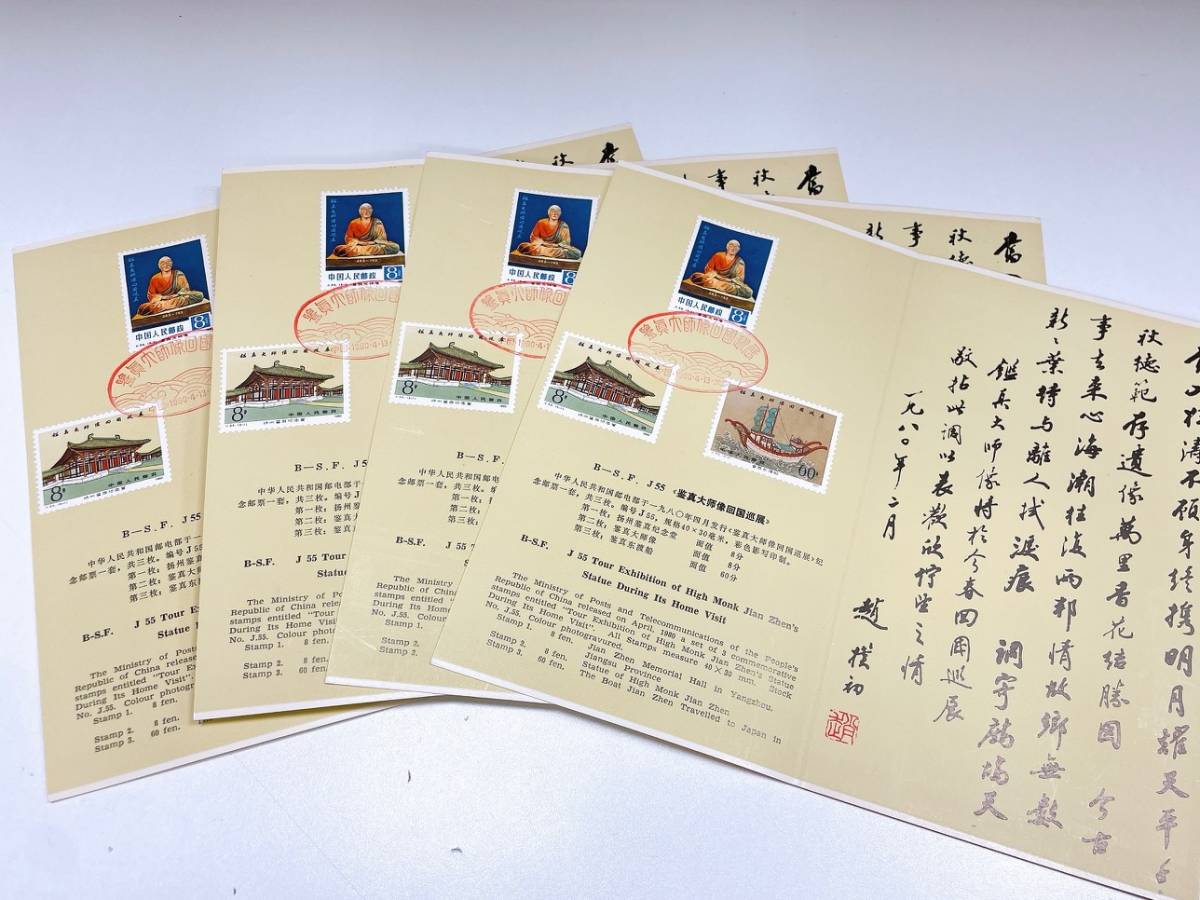 中国人民邮政
8分
鉴真大师像回国巡展
1980·4·13
8分
中国人民邮政
60分
B—S.F. J55 《鉴真大师像回国巡展》
中华人民共和国邮电部于一九八〇年四月发行《鉴真大师像回国巡展》纪
念邮票一套,共三枚。编号J55,规格40×30毫米,彩色影写印制。
第一枚:扬州鉴真纪念堂 面值 8分
第二枚:鉴真大师像 面值 8分
第三枚:鉴真东渡船 面值 60分
B-S.F. J 55 Tour Exhibition of High Monk Jian Zhen's
Statue During Its Home Visit
The Ministry of Posts and Telecommunications of the People's
Republic of China released on April, 1980 a set of 3 commemorative
stamps entitled "Tour Exhibition of High Monk Jian Zhen's Statue
During Its Home Visit". All Stamps measure 40×30 mm. Stock
No. J.55. Colour photogravured.
Stamp 1. 8 fen. Jian Zhen Memorial Hall in Yangzhou,
Jiangsu Province
Stamp 2. 8 fen. Statue of High Monk Jian Zhen
Stamp 3. 60 fen. The Boat Jian Zhen Travelled to Japan in
涛不顾身终携明月耀天平台
秋德范存遗像万里香花结胜因 今古
事去来心海潮往复两邦情故乡无数
新新叶待与离人拭泪痕 调寄鹧鸪天
鑑真大师像将于今春回国巡展
敬拈此调以表欢欣伫望之情
一九八〇年二月
趙樸初